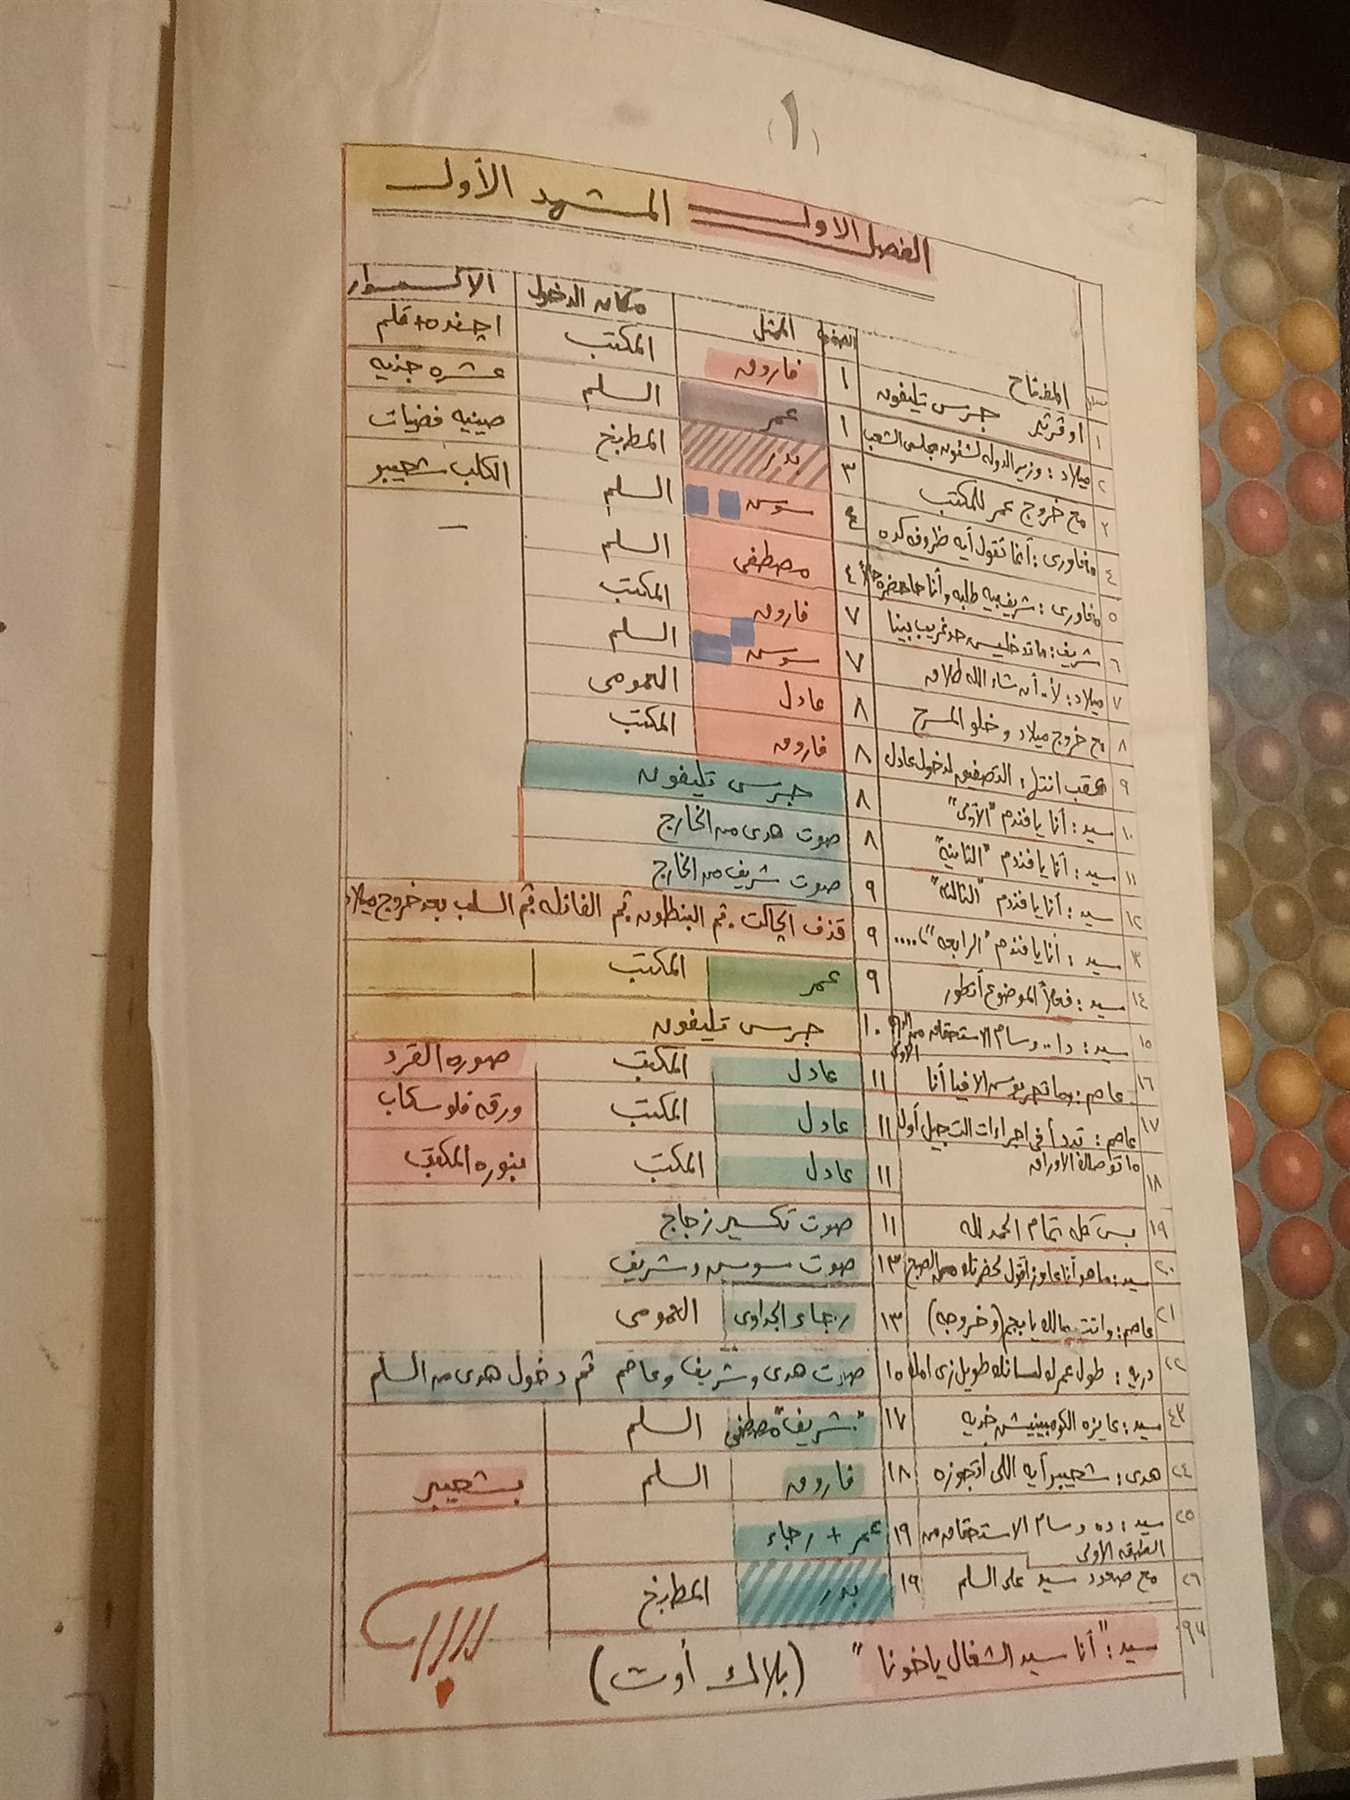 (١)
الفصل الاول المشهد الأول
مسلسل المفتاح الصفحة الممثل مكان الدخول الاكسسوار
١ اوفرتير جرس تليفون ١ فاروق المكتب اچنده + قلم
٢ ميلاد : وزير الدوله لشئون مجلس الشعب ١ عمر السلم عشره جنيه
٣ مع خروج عمر للمكتب ٣ بدر المطبخ صينيه فضيات
٤ مغاورى : أنما تقول أيه ظروفه كده ٤ سوسن السلم الكلب شحيبر
٥ مغاورى : شريف بيه طلبه وأنا حاحضره حالاً ٤ مصطفى السلم —
٦ شريف : ماتدخليش حد غريب بينا ٧ فاروق المكتب
٧ ميلاد : لأ .. أن شاء الله طلاق ٧ سوسن السلم
٨ مع خروج ميلاد وخلو المسرح ٨ عادل العمومى
٩ عقب انتهاء التصفيق لدخول عادل ٨ فاروق المكتب
١٠ سيد : أنا يا فندم "الأولى" ٨ جرس تليفون
١١ سيد : أنا يا فندم "الثانية" ٨ صوت هدى من الخارج
١٢ سيد : أنا يا فندم "الثالثه" ٩ صوت شريف من الخارج
١٣ سيد : أنا يا فندم "الرابعه" .... ٩ قذف الچاكت . ثم البنطلون . ثم الفانله ثم السلب بعد خروج ميلاد
١٤ سيد : فعلاً الموضوع أتطور ٩ عمر المكتب
١٥ سيد : دا .. وسام الاستحقاق من الدرجه الاولى ١٠ جرس تليفون
١٦ عاصم : وماتجربوش الافيا أنا ١١ عادل المكتب صوره القرد
١٧ عاصم : تبدأ فى اجراءات التسجيل أولا ١١ عادل المكتب ورقه فلوسكاب
١٨ ماتوصلك الاوراق ١١ عادل المكتب بنوره المكتب
١٩ بس كله تمام الحمد لله ١١ صوت تكسير زجاج
٢٠ سيد : ما هو أنا عاوز أقول لحضرتك من الصبح ١٣ صوت سوسن وشريف
٢١ عاصم : وانت مالك يا بجم (وخروجه) ١٣ رجاء الجداوى العمومى
٢٢ دريه : طول عمرك لسانك طويل زى امك ١٥ صوت هدى وشريف وعاصم ثم دخول هدى من السلم
٢٣ سيد : عايزه الكومبينيشن خديه ١٧ "شريف" مصطفى السلم
٢٤ هدى : شحيبر أيه اللى اتجوزه ١٨ فاروق السلم شحيبر
٢٥ سيد : ده وسام الاستحقاق من الطبقه الأولى ١٩ عمر + رجاء
٢٦ مع صعود سيد على السلم ١٩ بدر المطبخ
سيد : "أنا سيد الشغال ياخونا" (بلاك أوت)